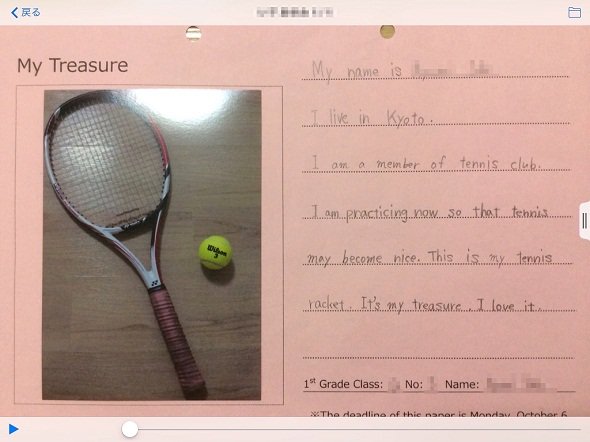 戻る
My Treasure
My name is
I live in Kyoto.
I am a member of tennis club.
I am practicing now so that tennis
may become nice. This is my tennis
racket. It's my treasure. I love it.
Wilson
3
1st Grade Class: No: Name:
※The deadline of this paper is Monday, October 6